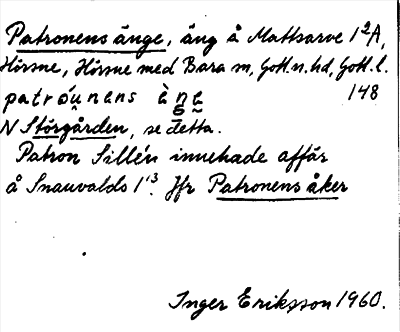 Patronens änge, äng å Mattsarve 1²A,
Hörsne, Hörsne med Bara sn, Gotl. n. hd, Gotl. l.
patróu̯nəns èŋə 148
N Störgården, se detta.
Patron Sillén innehade affär
å Snauvalds 1¹³. Jfr Patronens åker
Inger Eriksson 1960.